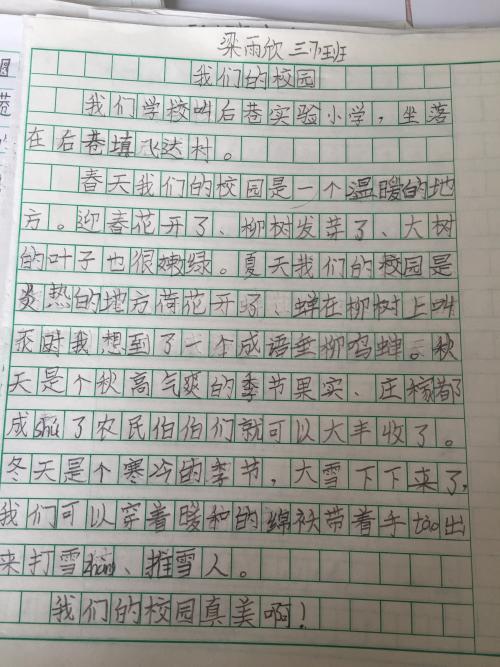 梁雨欣 三3班
我们的校园
我们学校叫后巷实验小学，坐落
在后巷填飞达村。
春天我们的校园是一个温暖的地
方。迎春花开了、柳树发芽了、大树
的叶子也很嫩绿。夏天我们的校园是
炎热的地方荷花开了、蝉在柳树上叫
来时我想到了一个成语垂柳鸣蝉。秋
天是个秋高气爽的季节果实、庄稼都
成shu了农民伯伯们就可以大丰收了。
冬天是个寒冷的季节，大雪下下来了，
我们可以穿着暖和的绵袄带着手tào出
来打雪zhang、推雪人。
我们的校园真美啊！